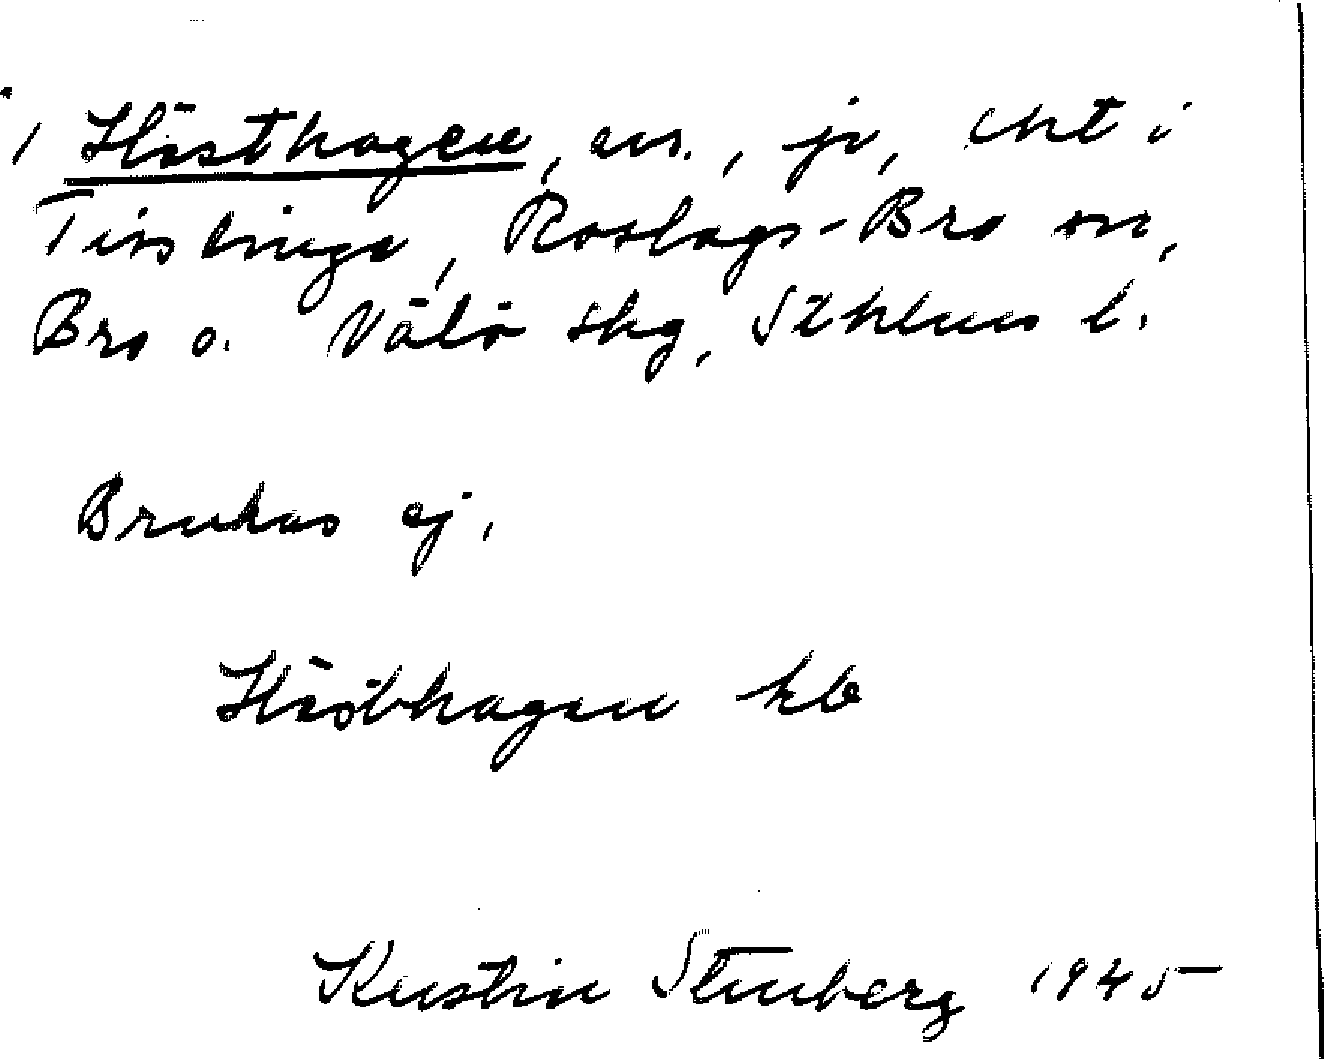 1 Hästhagen, avs., jo, cht i
Tisslinge, Roslags-Bro sn,
Bro o. Väddö skg, Sthlms l.
Brukas ej.
Hästhagen kb
Kerstin Stenberg 1945